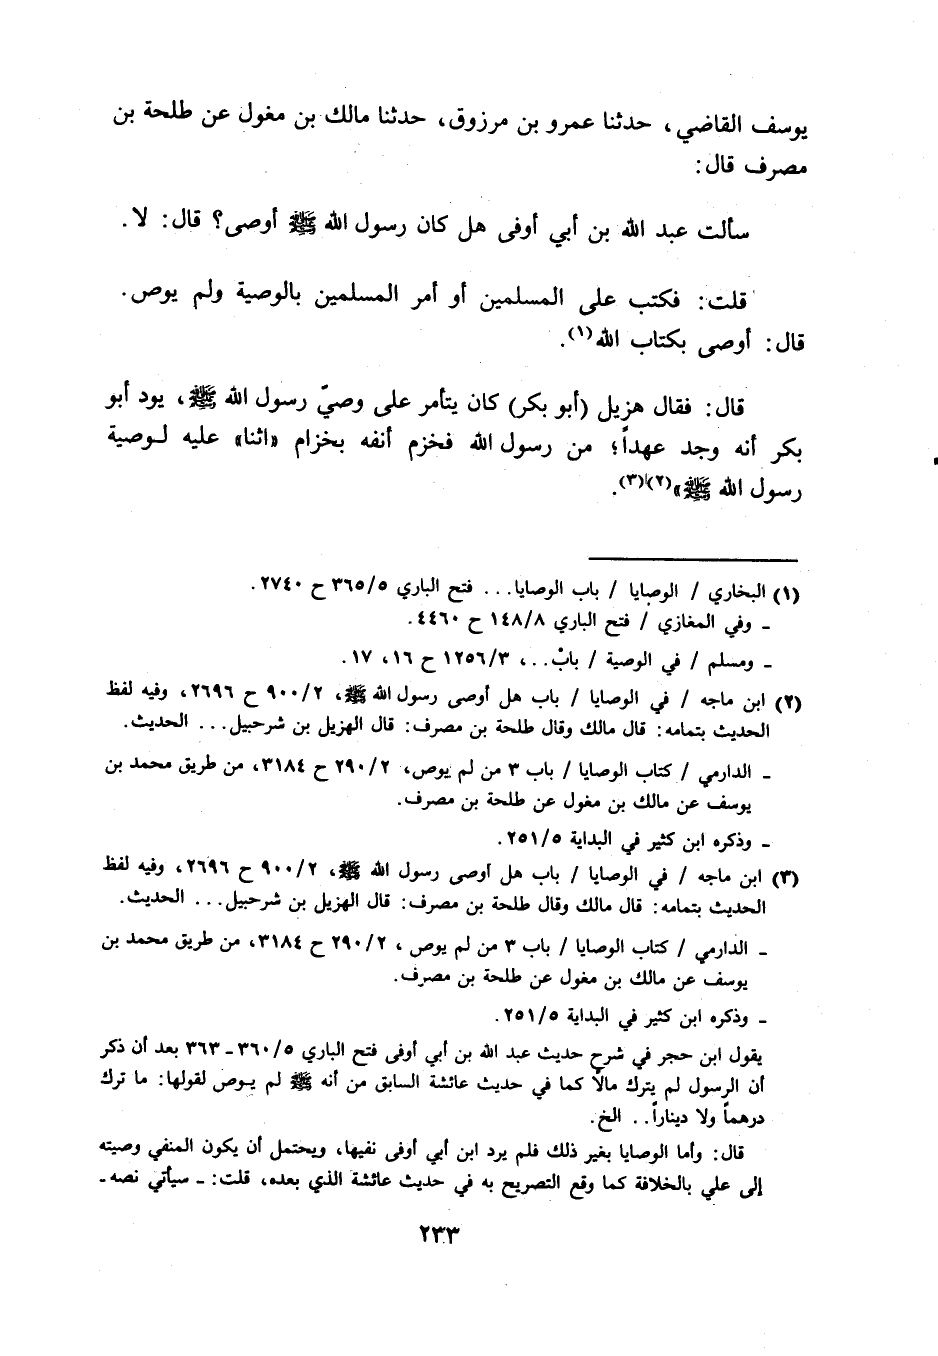 يوسف القاضي، حدثنا عمرو بن مرزوق، حدثنا مالك بن مغول عن طلحة بن
مصرف قال:
سألت عبد الله بن أبي أوفى هل كان رسول الله ﷺ أوصى؟ قال: لا.
قلت: فكتب على المسلمين أو أمر المسلمين بالوصية ولم يوص.
قال: أوصى بكتاب الله(١).
قال: فقال هزيل (أبو بكر) كان يتأمر على وصيّ رسول الله ﷺ، يود أبو
بكر أنه وجد عهداً؛ من رسول الله فخزم أنفه بخزام «اثنا» عليه لوصية
رسول الله ﷺ»(٢)(٣).
(١) البخاري / الوصايا / باب الوصايا... فتح الباري ٣٦٥/٥ ح ٢٧٤٠.
ـ وفي المغازي / فتح الباري ١٤٨/٨ ح ٤٤٦٠.
ـ ومسلم / في الوصية / بابْ...، ١٢٥٦/٣ ح ١٦، ١٧.
(٢) ابن ماجه / في الوصايا / باب هل أوصى رسول الله ﷺ، ٩٠٠/٢ ح ٢٦٩٦، وفيه لفظ
الحديث بتمامه: قال مالك وقال طلحة بن مصرف: قال الهزيل بن شرحبيل... الحديث.
ـ الدارمي / كتاب الوصايا / باب ٣ من لم يوص، ٢٩٠/٢ ح ٣١٨٤، من طريق محمد بن
يوسف عن مالك بن مغول عن طلحة بن مصرف.
ـ وذكره ابن كثير في البداية ٢٥١/٥.
(٣) ابن ماجه / في الوصايا / باب هل أوصى رسول الله ﷺ، ٩٠٠/٢ ح ٢٦٩٦، وفيه لفظ
الحديث بتمامه: قال مالك وقال طلحة بن مصرف: قال الهزيل بن شرحبيل... الحديث.
ـ الدارمي / كتاب الوصايا / باب ٣ من لم يوص، ٢٩٠/٢ ح ٣١٨٤، من طريق محمد بن
يوسف عن مالك بن مغول عن طلحة بن مصرف.
ـ وذكره ابن كثير في البداية ٢٥١/٥.
يقول ابن حجر في شرح حديث عبد الله بن أبي أوفى فتح الباري ٣٦٠/٥ ـ ٣٦٣ بعد أن ذكر
أن الرسول لم يترك مالاً كما في حديث عائشة السابق من أنه ﷺ لم يوص لقولها: ما ترك
درهماً ولا ديناراً.. الخ.
قال: وأما الوصايا بغير ذلك فلم يرد ابن أبي أوفى نفيها، ويحتمل أن يكون المنفي وصيته
إلى علي بالخلافة كما وقع التصريح به في حديث عائشة الذي بعده، قلت: ـ سيأتي نصه ـ
٢٣٣